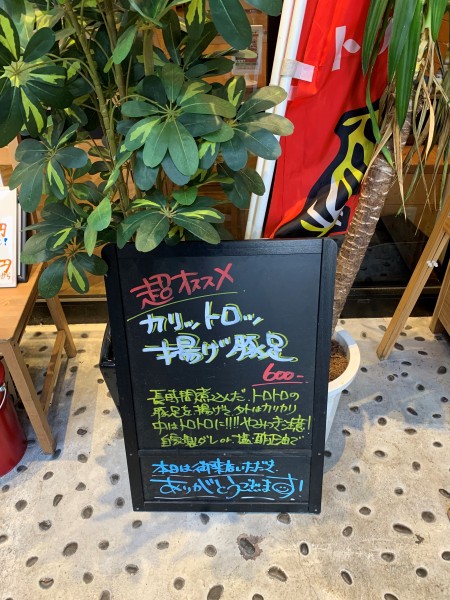 超オススメ
カリットロッ
揚げ豚足
600-
長時間煮込んだ、トロトロの
豚足を揚げて外はカリカリ
中はトロトロに!!!!やみつき注意!
自家製ダレor塩胡椒で
本日は御来店いただきて
ありがとうございます!
円
円
ト